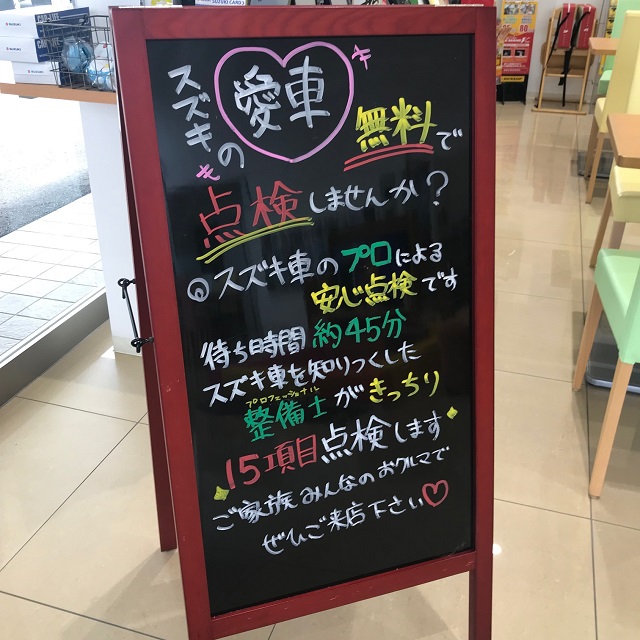 SUZUKI CARD
SUZUKI
SUZUKI
スズキの
愛車
無料で
点検しませんか?
スズキ車のプロによる
安心点検です
待ち時間約45分
スズキ車を知りつくした
プロフェッショナル
整備士がきっちり
15項目点検します
ご家族みんなのおクルマで
ぜひご来店下さい♡